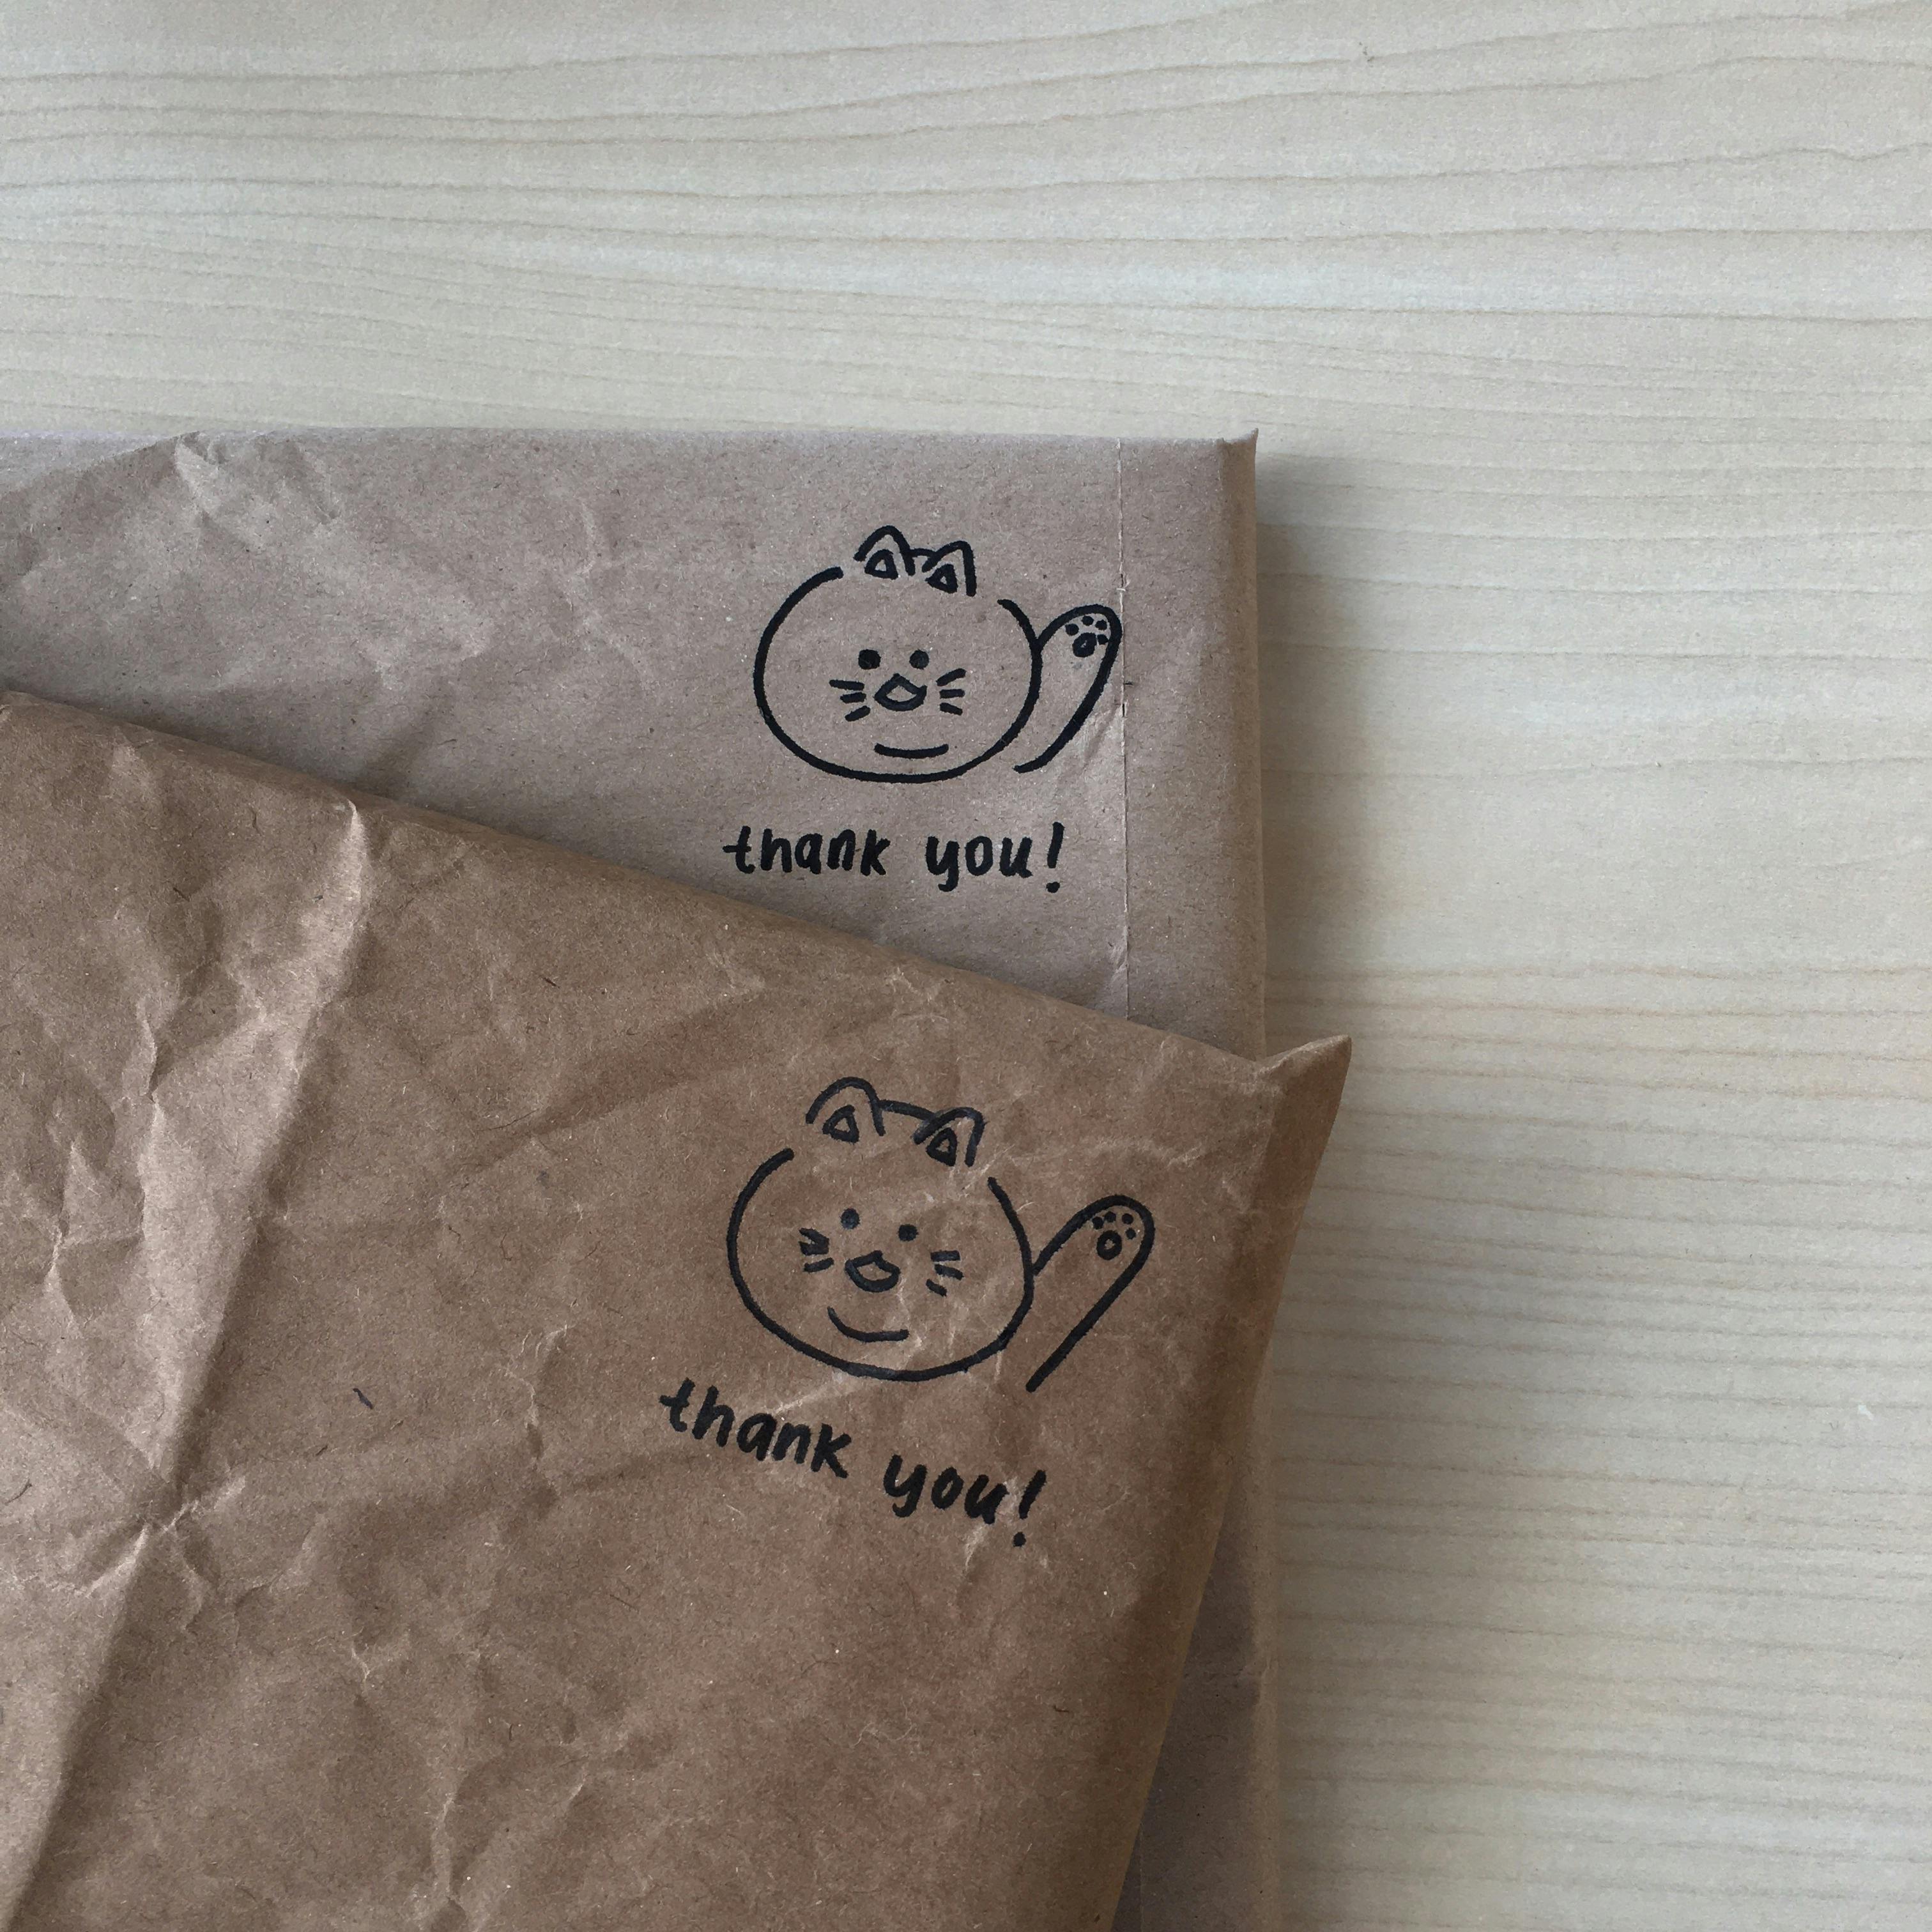 thank you!
thank you!